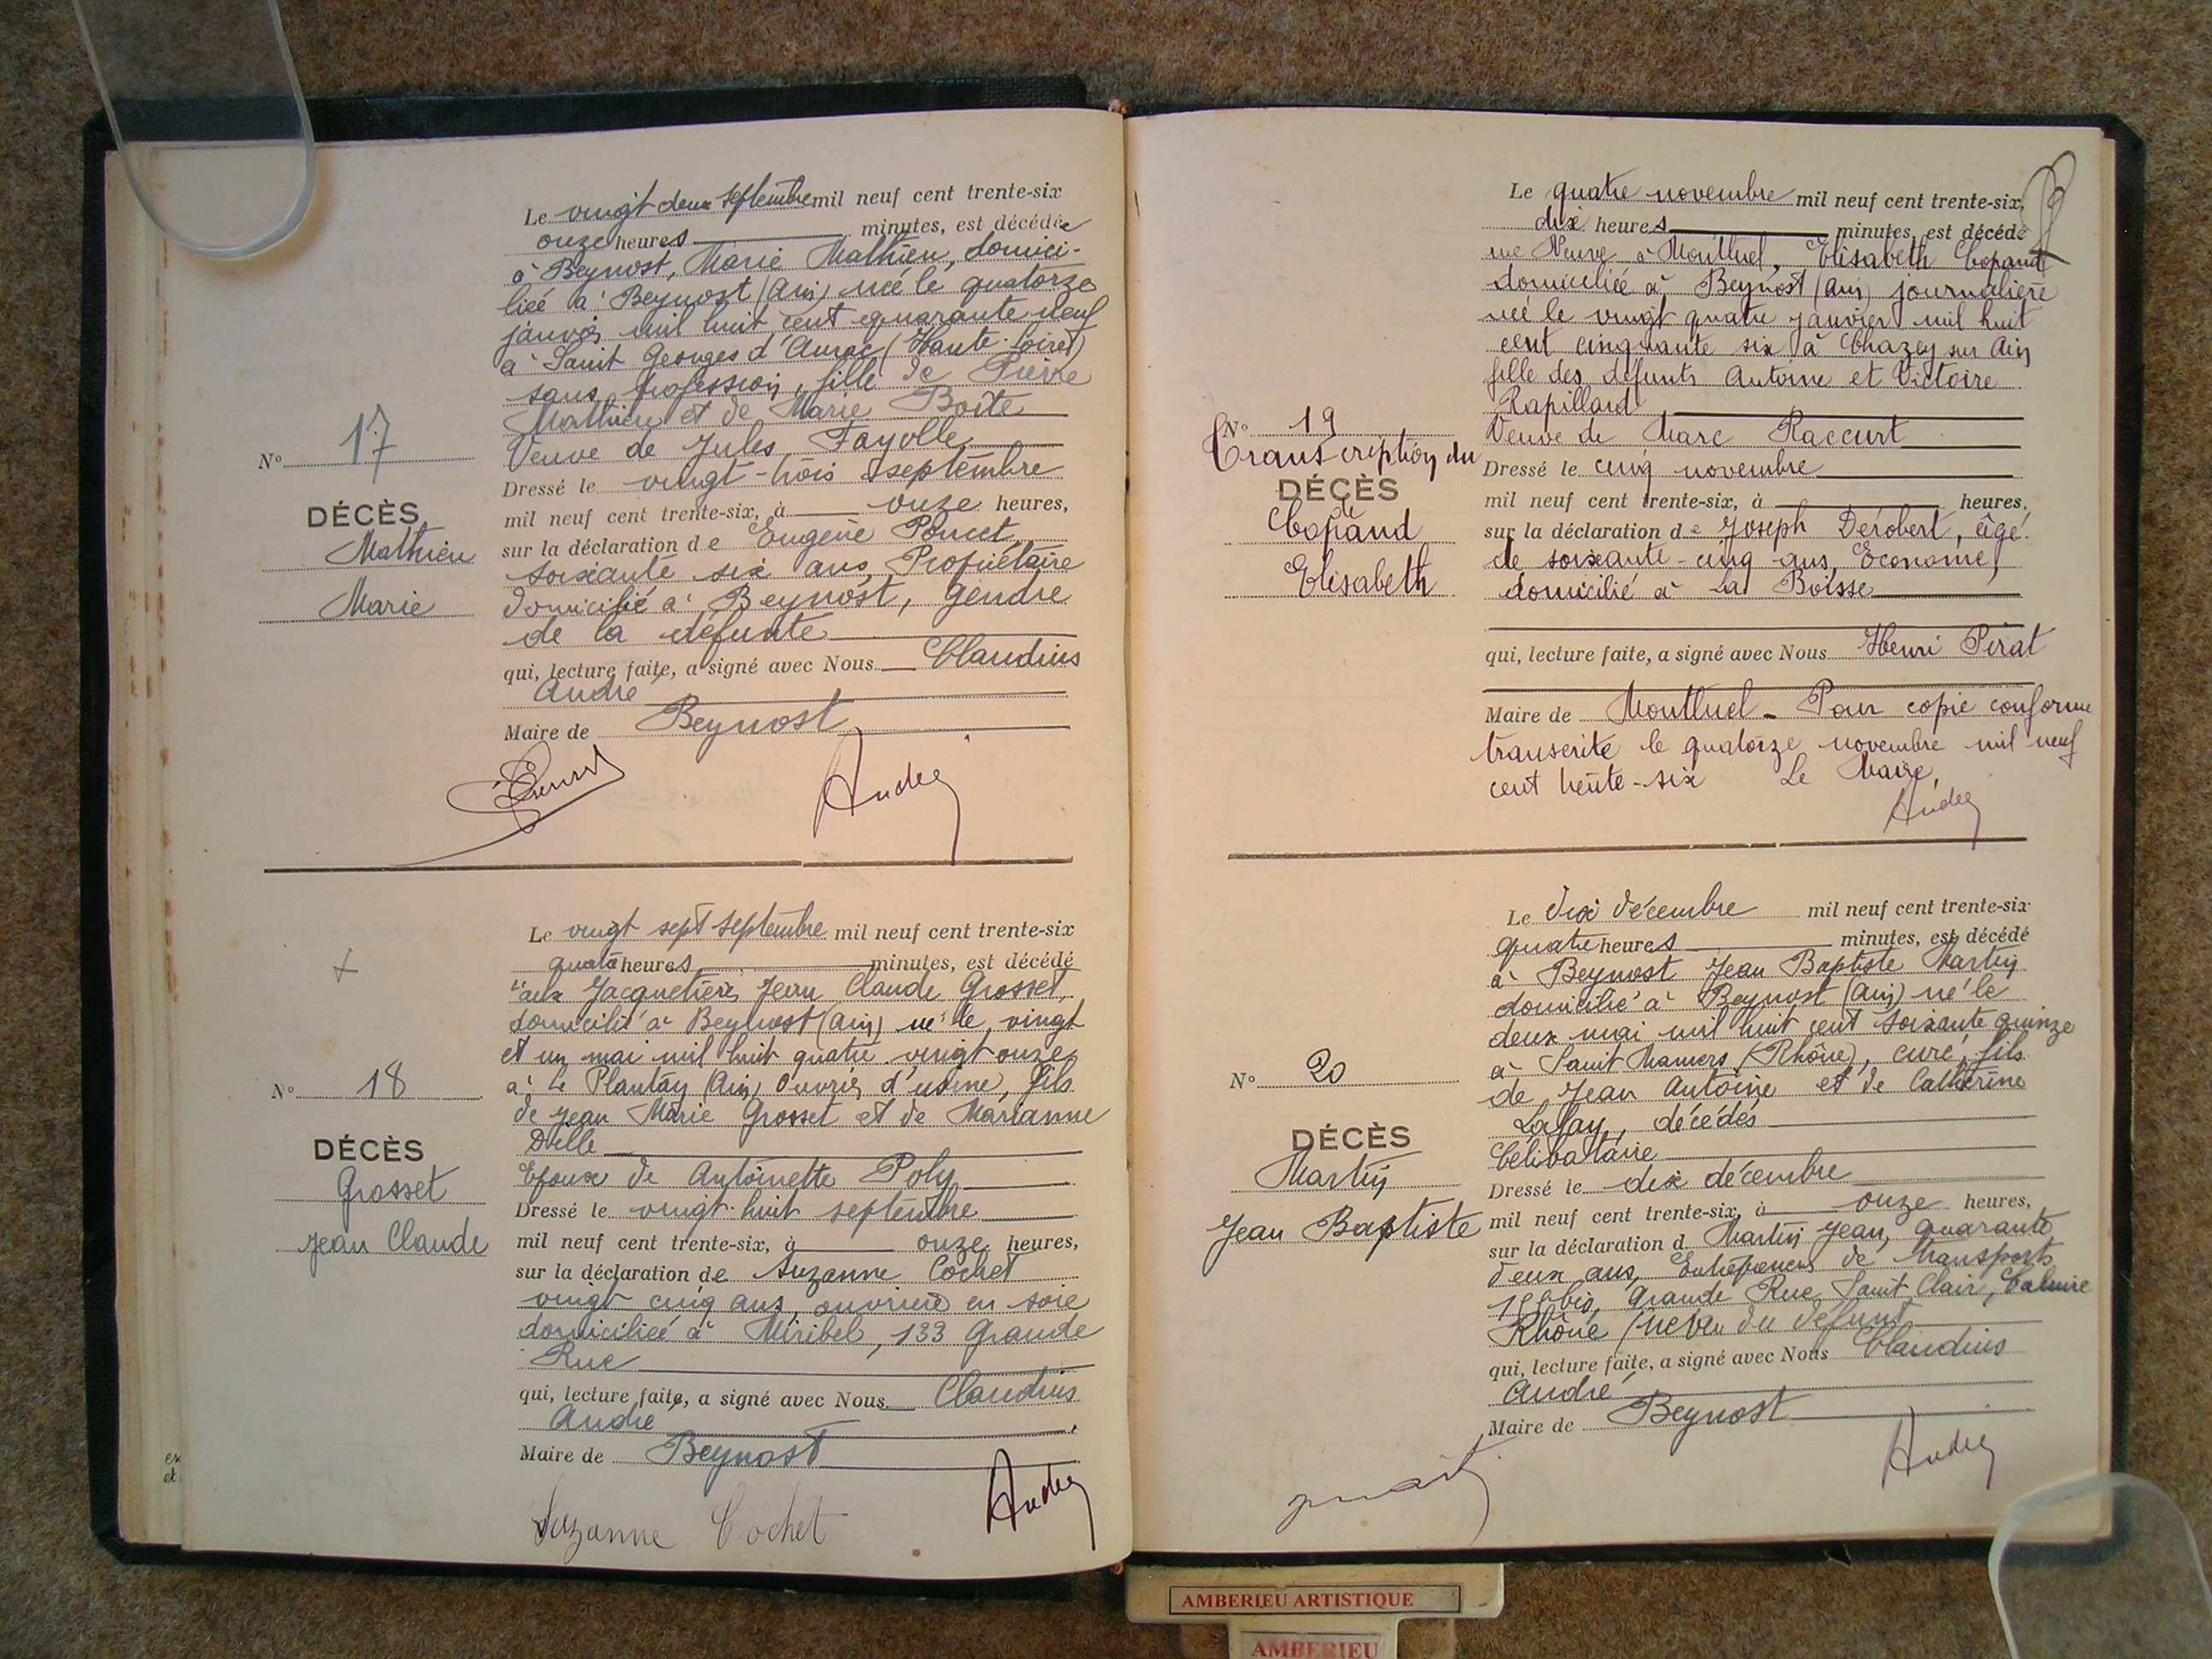 Le vingt deux septembre mil neuf cent trente-six
onze heures minutes, est décédée
à Beynost, Marie Mathieu, domici-
liée à Beynost (Ain) née le quatorze
janvier mil huit cent quarante neuf
à Saint Georges d'Aurac (Haute-Loire)
sans profession, fille de Pierre
Mathieu et de Marie Boîte
Veuve de Jules Fayolle
Dressé le vingt-trois septembre
mil neuf cent trente-six, à onze heures,
sur la déclaration de Eugène Poncet
soixante six ans, Propriétaire
domicilié à Beynost, gendre
de la défunte
qui, lecture faite, a signé avec Nous Claudius
André
Maire de Beynost
André
N° 17
DÉCÈS
Mathieu
Marie
Le vingt sept septembre mil neuf cent trente-six
quatre heures minutes, est décédé
"aux Jacquetières Jean Claude Grosset,
domicilié à Beynost (Ain) né le vingt
et un mai mil huit quatre vingt onze
à Le Plantay (Ain) ouvrier d'usine, fils
de Jean Marie Grosset et de Marianne
Dulle
Epoux de Antoinette Poly
Dressé le vingt-huit septembre
mil neuf cent trente-six, à onze heures,
sur la déclaration de Suzanne Cochet
vingt cinq ans, ouvrière en soie
domiciliée à Miribel, 133 Grande
Rue
qui, lecture faite, a signé avec Nous Claudius
André
Maire de Beynost
Suzanne Cochet André
N° 18
DÉCÈS
Grosset
Jean Claude
ex
et
Le quatre novembre mil neuf cent trente-six,
dix heures minutes, est décédé
rue Neuve à Montluel, Elisabeth Copand
domiciliée à Beynost (Ain) journalière
née le vingt quatre janvier mil huit
cent cinquante six à Chazey sur Ain
fille des défunts Antoine et Victoire
Rapillard
Veuve de Marc Raccurt
Dressé le cinq novembre
mil neuf cent trente-six, à heures,
sur la déclaration de Joseph Dérobert, âgé
de soixante-cinq ans, Econome,
domicilié à La Boisse
qui, lecture faite, a signé avec Nous Henri Pirat
Maire de Montluel - Pour copie conforme
transcrite le quatorze novembre mil neuf
cent trente-six Le Maire,
André
N° 19
Transcription du
DÉCÈS
de
Copand
Elisabeth
Le dix décembre mil neuf cent trente-six
quatre heures minutes, est décédé
à Beynost Jean Baptiste Martin
domicilié à Beynost (Ain) né le
deux mai mil huit cent soixante quinze
à Saint Mamers (Rhône), curé, fils
de Jean Antoine et de Catherine
Lafay, décédés
Célibataire
Dressé le dix décembre
mil neuf cent trente-six, à onze heures,
sur la déclaration d Martin Jean, quarante
deux ans, Entrepreneur de transports
bis, Grande Rue Saint Clair, Caluire
Rhône (neveu du défunt
qui, lecture faite, a signé avec Nous Claudius
André
Maire de Beynost
André
N° 20
DÉCÈS
Martin
Jean Baptiste
AMBERIEU ARTISTIQUE
AMBERIEU